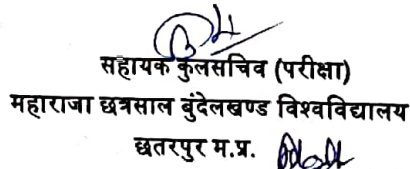 सहायक कुलसचिव (परीक्षा)
महाराजा छत्रसाल बुंदेलखण्ड विश्वविद्यालय
छतरपुर म.प्र.